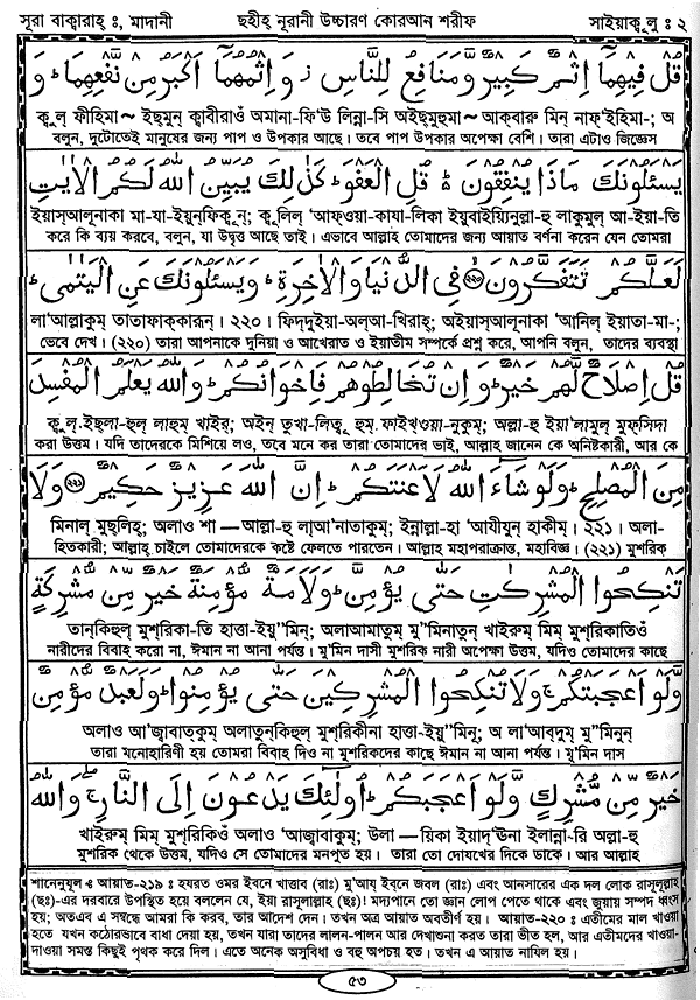 সূরা বাক্বারাহ্ ঃ, মাদানী ছহীহ্ নূরানী উচ্চারণ কোরআন শরীফ সাইয়াকূলু ঃ ২
قُلْ فِيهِمَا إِثْمٌ كَبِيرٌ وَمَنَافِعُ لِلنَّاسِ ز وَإِثْمُهُمَا أَكْبَرُ مِنْ نَفْعِهِمَا ط وَ
ক্বুল্ ফীহিমা~ ইছ্মুন্ ক্বাবীরাওঁ অমানা-ফি'উ লিন্না-সি অইছ্মুহুমা~ আক্বারু মিন্ নাফ্'ইহিমা-; অ
বলুন, দুটোতেই মানুষের জন্য পাপ ও উপকার আছে। তবে পাপ উপকার অপেক্ষা বেশি। তারা এটাও জিজ্ঞেস
يَسْئَلُونَكَ مَاذَا يُنْفِقُونَ ه قُلِ الْعَفْوَ ط كَذَٰلِكَ يُبَيِّنُ اللَّهُ لَكُمُ الْآيَٰتِ
ইয়াস্আলূনাকা মা-যা-ইয়ুন্ফিকূন্; ক্বুলিল্ 'আফ্ওয়া-কাযা-লিকা ইয়ুবাইয়্যিনুল্লা-হু লাকুমুল্ আ-ইয়া-তি
করে কি ব্যয় করবে, বলুন, যা উদ্বৃত্ত আছে তাই। এভাবে আল্লাহ তোমাদের জন্য আয়াত বর্ণনা করেন যেন তোমরা
لَعَلَّكُمْ تَتَفَكَّرُونَ ﴿٢٢٠﴾ فِي الدُّنْيَا وَالْآخِرَةِ ط وَيَسْئَلُونَكَ عَنِ الْيَتَٰمَى ط
লা'আল্লাকুম্ তাতাফাক্কারূন্। ২২০। ফিদ্দুইয়া-অল্আ-খিরাহ্; অইয়াস্আলূনাকা 'আনিল্ ইয়াতা-মা-;
ভেবে দেখ। (২২০) তারা আপনাকে দুনিয়া ও আখেরাত ও ইয়াতীম সম্পর্কে প্রশ্ন করে, আপনি বলুন, তাদের ব্যবস্থা
قُلْ إِصْلَاحٌ لَهُمْ خَيْرٌ ط وَإِنْ تُخَالِطُوهُمْ فَإِخْوَانُكُمْ ط وَاللَّهُ يَعْلَمُ الْمُفْسِدَ
ক্বুল্-ইছ্লা-হুল্ লাহুম্ খাইর্; অইন্ তুখা-লিত্বূ হুম্ ফাইখ্ওয়া-নুকুম্; অল্লা-হু ইয়া'লামুল্ মুফ্সিদা
করা উত্তম। যদি তাদেরকে মিশিয়ে লও, তবে মনে কর তারা তোমাদের ভাই, আল্লাহ জানেন কে অনিষ্টকারী, আর কে
مِنَ الْمُصْلِحِ ط وَلَوْ شَاءَ اللَّهُ لَأَعْنَتَكُمْ ط إِنَّ اللَّهَ عَزِيزٌ حَكِيمٌ ﴿٢٢١﴾ وَلَا
মিনাল্ মুছ্লিহ্; অলাও শা — আল্লা-হু লাআ'নাতাকুম্; ইন্নাল্লা-হা 'আযীযুন্ হাকীম্। ২২১। অলা-
হিতকারী; আল্লাহ চাইলে তোমাদেরকে কষ্টে ফেলতে পারতেন। আল্লাহ মহাপরাক্রান্ত, মহাবিজ্ঞ। (২২১) মুশরিক
تَنْكِحُوا الْمُشْرِكَٰتِ حَتَّى يُؤْمِنَّ ط وَلَأَمَةٌ مُؤْمِنَةٌ خَيْرٌ مِنْ مُشْرِكَةٍ
তান্কিহুল্ মুশ্রিকা-তি হাত্তা-ইয়ু''মিন্; অলাআমাতুম্ মু''মিনাতুন্ খাইরুম্ মিম্ মুশ্রিকাতিওঁ
নারীদের বিবাহ্ করো না, ঈমান না আনা পর্যন্ত। মু'মিন দাসী মুশরিক নারী অপেক্ষা উত্তম, যদিও তোমাদের কাছে
وَلَوْ أَعْجَبَتْكُمْ ج وَلَا تُنْكِحُوا الْمُشْرِكِينَ حَتَّى يُؤْمِنُوا ط وَلَعَبْدٌ مُؤْمِنٌ
অলাও আ'জ্বাবাত্কুম্ অলাতুন্কিহুল্ মুশ্রিকীনা হাত্তা-ইয়ু''মিনু; অ লা'আব্দুম্ মু''মিনুন্
তারা মনোহারিণী হয় তোমরা বিবাহ্ দিও না মুশরিকদের কাছে ঈমান না আনা পর্যন্ত। মু'মিন দাস
خَيْرٌ مِنْ مُشْرِكٍ وَلَوْ أَعْجَبَكُمْ ط أُولَٰئِكَ يَدْعُونَ إِلَى النَّارِ ج وَاللَّهُ
খাইরুম্ মিম্ মুশ্রিকিওঁ অলাও 'আজ্বাবাকুম্; উলা — য়িকা ইয়াদ্'ঊনা ইলান্না-রি অল্লা-হু
মুশরিক থেকে উত্তম, যদিও সে তোমাদের মনপূত হয়। তারা তো দোযখের দিকে ডাকে। আর আল্লাহ
শানেনুযূল ঃ আয়াত-২১৯ ঃ হযরত ওমর ইবনে খাত্তাব (রাঃ) মু'আয্ ইব্নে জবল (রাঃ) এবং আনসারের এক দল লোক রাসূলুল্লাহ্
(ছঃ)-এর দরবারে উপস্থিত হয়ে বললেন যে, ইয়া রাসূলাল্লাহ্ (ছঃ)! মদ্যপানে তো জ্ঞান লোপ পেতে থাকে এবং জুয়ায় সম্পদ ধ্বংস
হয়; অতএব এ সম্বন্ধে আমরা কি করব, তার আদেশ দেন। তখন অত্র আয়াত অবতীর্ণ হয়। আয়াত-২২০ ঃ এতীমের মাল খাওয়া
হতে যখন কঠোরভাবে বাধা দেয়া হয়, তখন যারা তাদের লালন-পালন আর দেখাশুনা করত তারা ভীত হল, আর এতীমদের খাওয়া-
দাওয়া সমস্ত কিছুই পৃথক করে দিল। এতে অনেক অসুবিধা ও বহু অপচয় হত। তখন এ আয়াত নাযিল হয়।
৫৩